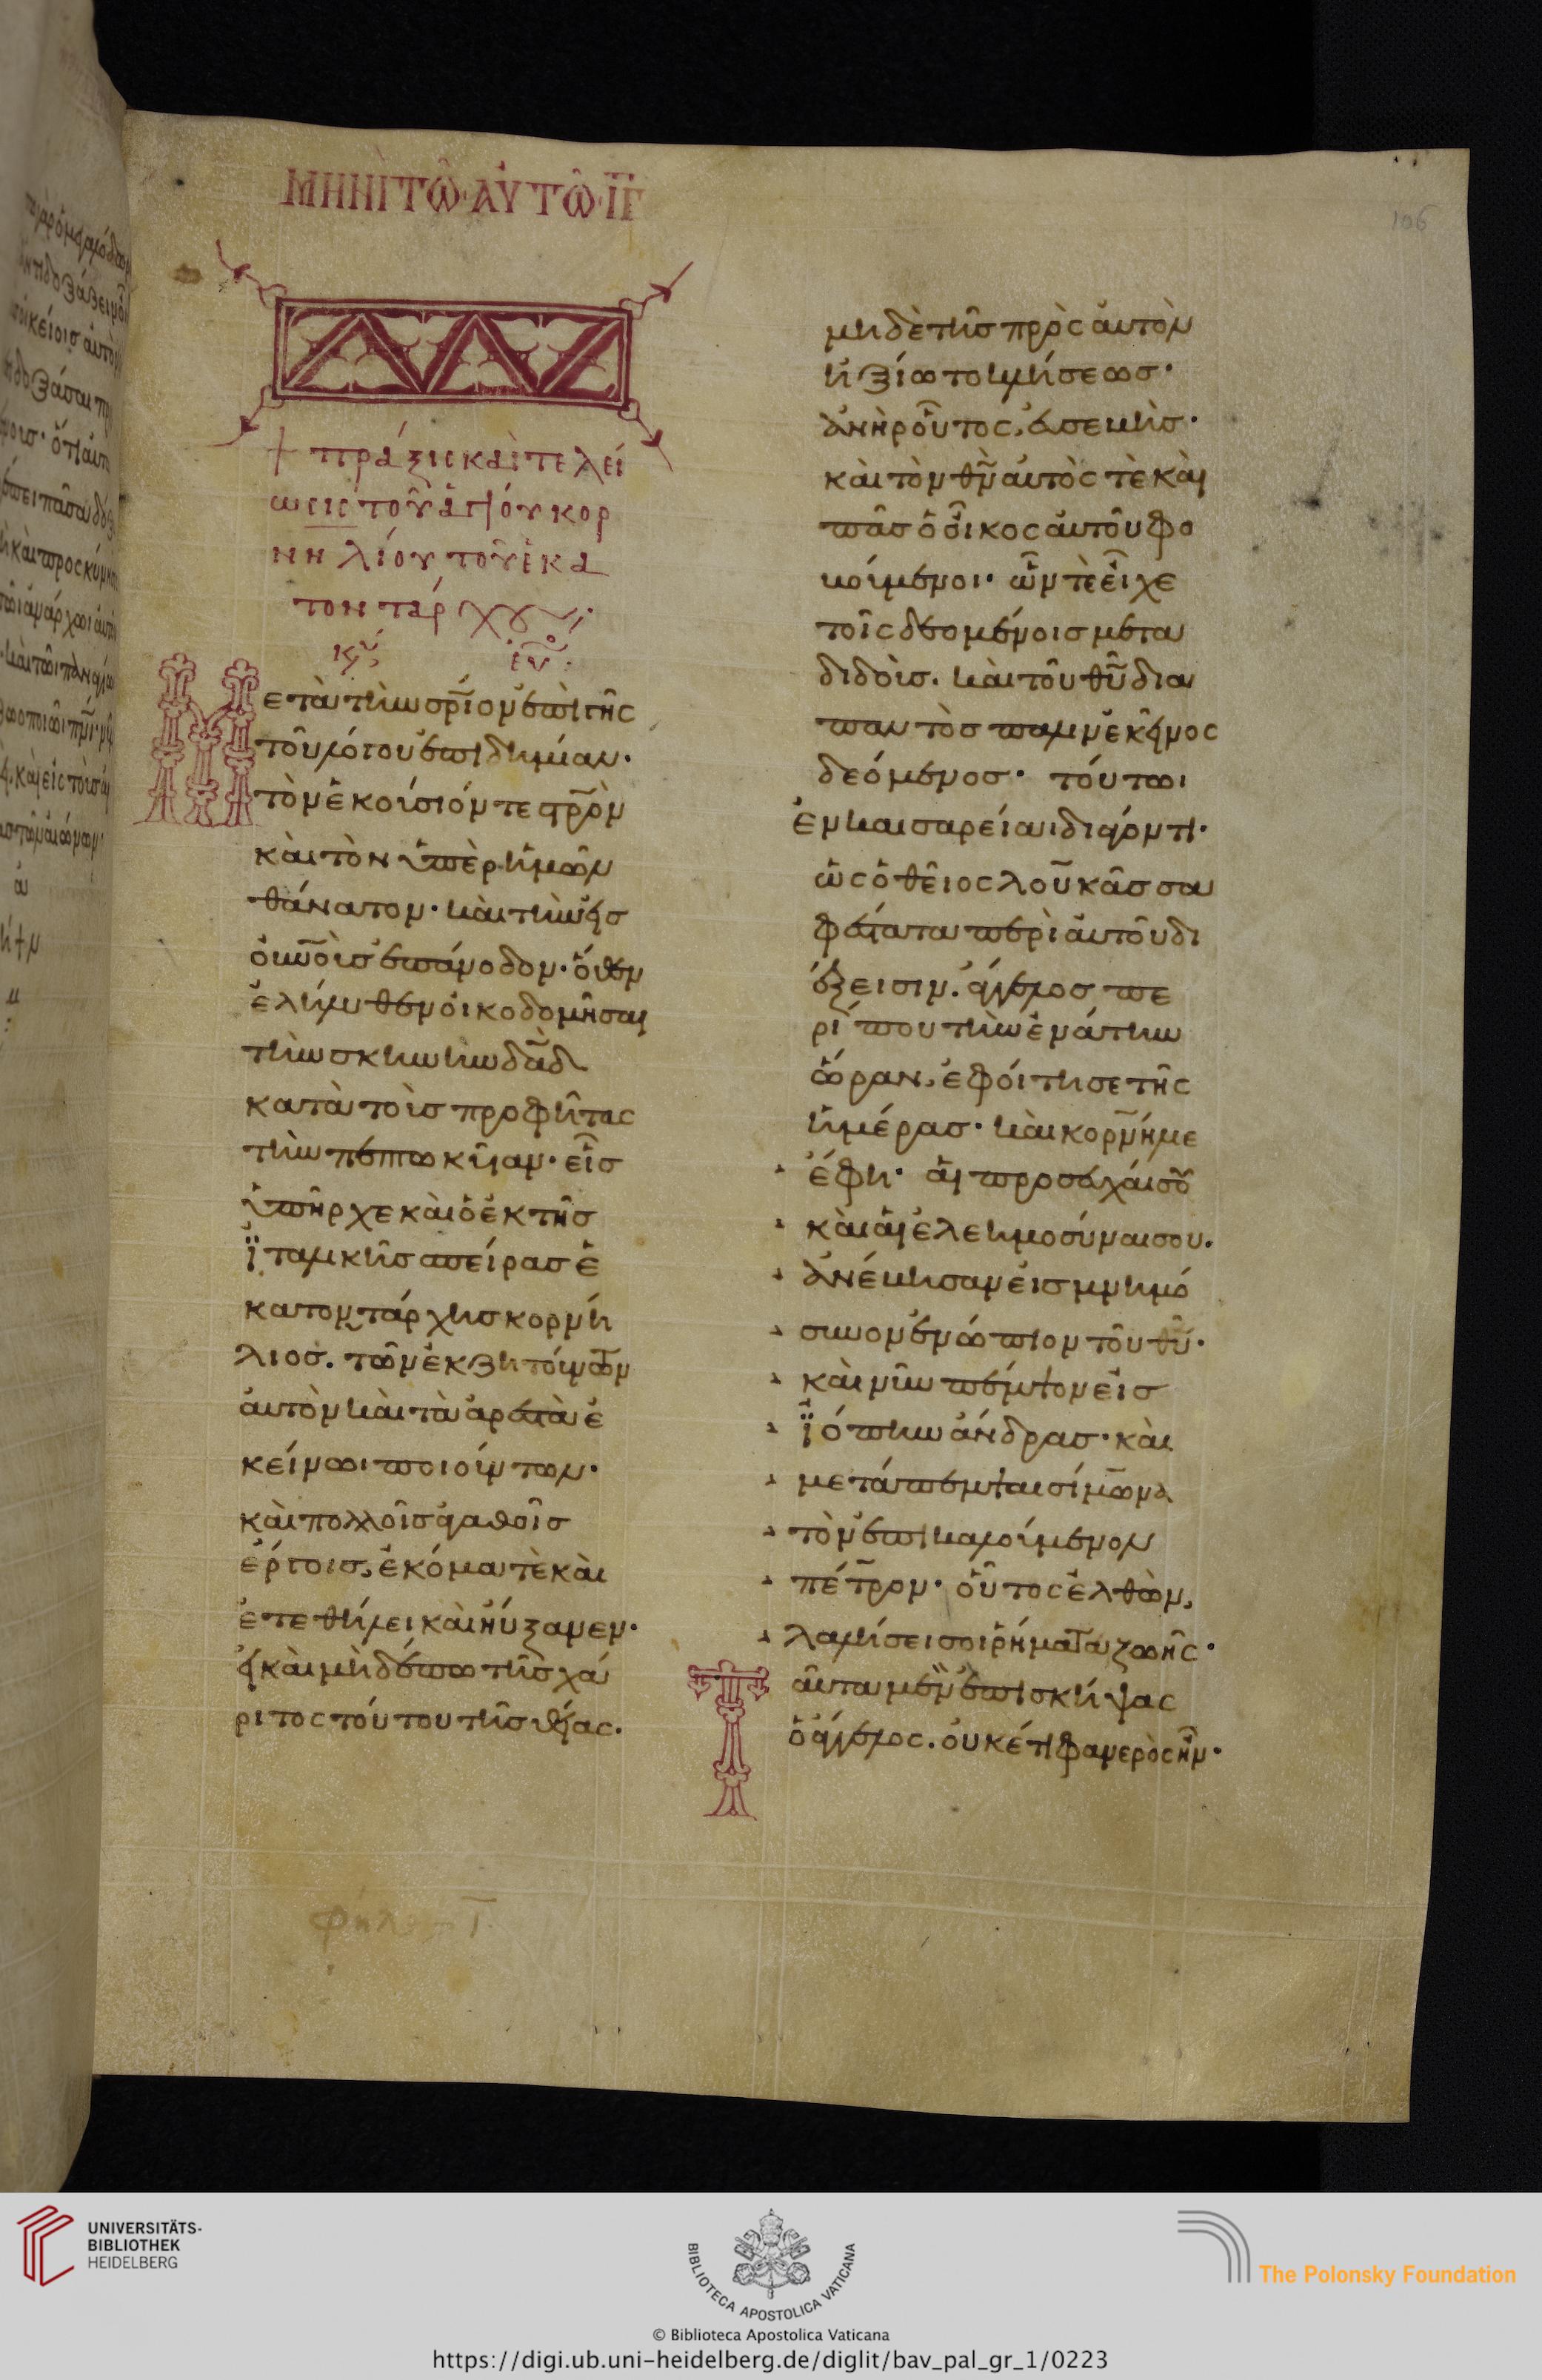 ΜΗΝῚ ΤΩ̂· ΑΥ̓ΤΩ̂· ΙΓ
106
+ πράξις καὶ τελεί
ωσις τοῦ ἁγίου κορ
νηλίου τοῦ ἑκα
τοντάρχου
Μετὰ τὴν σ̅ρ̅ι̅ον ἐπὶ γῆς
τοῦ λόγου ἐπιδημίαν·
τὸν ἑκούσιόν τε σ̅ρ̅ὸν
καὶ τὸν ὑπὲρ ἡμῶν
θάνατον· καὶ τὴν εἰς
ο̅υ̅ν̅ο̅ὺς ἐπάνοδον· ὅθεν
ἐλήλυθεν οἰκοδομῆσαι
τὴν σκηνὴν δ̅α̅δ̅
κατὰ τοὺς προφήτας
τὴν πεπτωκυῖαν· εἷς
ὑπῆρχε καὶ ὁ ἐκ τῆς
ϊταλικῆς σπείρας ἑ
κατοντάρχης κορνή
λιος. τῶν ἐκζητούντων
αὐτὸν καὶ τὰ ἀρεστὰ ἐ
κείνωι ποιούντων·
καὶ πολλοῖς ἀγαθοῖς
ἔργοις, ἐκόμα τὲ καὶ
ἐτεθήλει καὶ ηὔξανεν·
εἰ καὶ μὴ δέπω τῆς χά
ριτος τούτου τῆς θείας.
μηδὲ τῆς πρὸς αὐτὸν
ἠξίωτο μυήσεως·
ἀνὴρ οὗτος, εὐσεβὴς·
καὶ τὸν θ̅ν̅ αὐτὸς τὲ καὶ
πᾶς ὁ οἶκος αὐτοῦ φο
βούμενοι· ὧν τὲ εἶχε
τοῖς δεομένοις μετα
διδοὺς. καὶ τοῦ θ̅υ̅ δια
παντὸς πᾶν ἐκεῖνος
δεόμενος· τούτωι
ἐν καισαρείαι διάγοντι·
ὡς ὁ θεῖος λουκᾶς σα
φέστατα περὶ αὐτοῦ δι
έξεισιν. ἄγγελος πε
ρί που τὴν ἐνάτην
ὥραν, ἐφοίτησε τῆς
ἡμέρας· καὶ κορνήλιε
ἔφη· αἱ προσευχαί σου
καὶ αἱ ἐλεημοσύναι σου.
ἀνέβησαν εἰς μνημό
συνον ἐνώπιον τοῦ θ̅υ̅·
καὶ νῦν πέμψον εἰς
ϊόππην ἄνδρας· καὶ
μετάπεμψαι σίμωνα
τὸν ἐπικαλούμενον
πέτρον· οὗτος ἐλθὼν,
λαλήσει σοι ῥήματα ζωῆς·
Ταῦτα μὲν ἐπισκήψας
ὁ ἄγγελος. οὐκέτι φανερὸς ἦν·
UNIVERSITÄTS-
BIBLIOTHEK
HEIDELBERG
BIBLIOTECA APOSTOLICA VATICANA
The Polonsky Foundation
© Biblioteca Apostolica Vaticana
https://digi.ub.uni-heidelberg.de/diglit/bav_pal_gr_1/0223